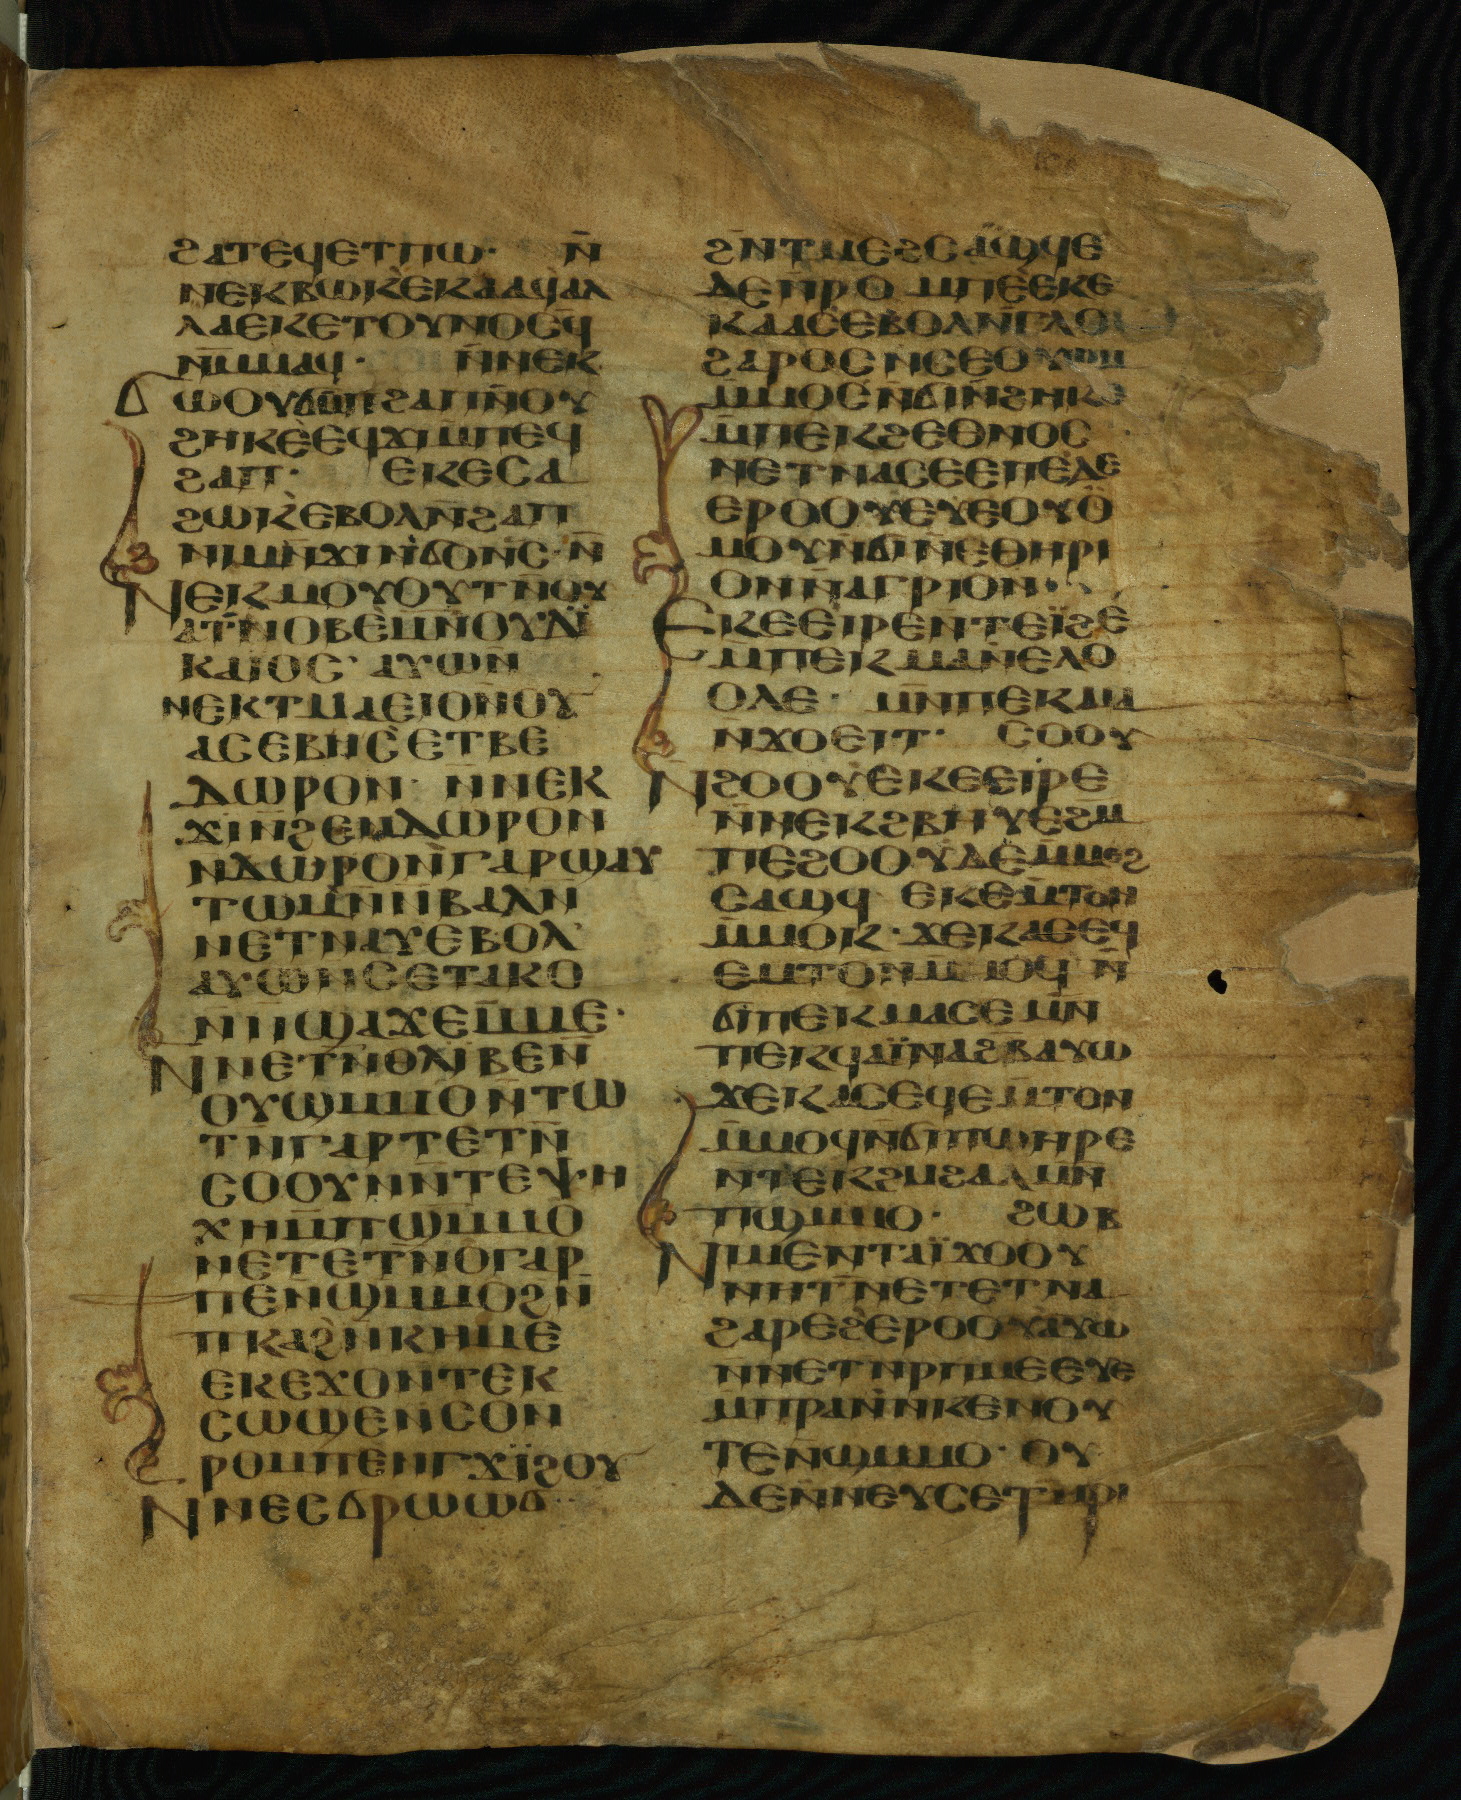 ϩⲁⲧⲉϥⲉⲧⲡⲱ· ⲛ̄
ⲛⲉⲕⲃⲱⲕⲉⲕⲁⲁϥⲁⲗ
ⲗⲁⲉⲕⲉⲧⲟⲩⲛⲟⲥϥ̄
ⲛⲙ̄ⲙⲁϥ· ⲛ̄ⲛⲉⲕ
ϭⲱⲟⲩϭⲙ̄ⲡϩⲁⲡⲛ̄ⲟⲩ
ϩⲏⲕⲉⲉϥϫⲓⲙ̄ⲡⲉϥ
ϩⲁⲡ· ⲉⲕⲉⲥⲁ
ϩⲱⲕⲉⲃⲟⲗⲛ̄ϩⲁⲡ
ⲛⲓⲙⲛ̄ϫⲓⲛϭⲟⲛⲥ̄· ⲛ̄
ⲛⲉⲕⲙⲟⲩⲟⲩⲧⲛ̄ⲟⲩ
ⲁⲧⲛⲟⲃⲉⲙⲛ̄ⲟⲩⲇⲓ
ⲕⲁⲓⲟⲥ· ⲁⲩⲱⲛ̄
ⲛⲉⲕⲧⲙⲁⲉⲓⲟⲛ̄ⲟⲩ
ⲁⲥⲉⲃⲏⲥⲉⲧⲃⲉ
ⲇⲱⲣⲟⲛ· ⲛ̄ⲛⲉⲕ
ϫⲓⲛ̄ϩⲉⲛⲇⲱⲣⲟⲛ
ⲛ̄ⲇⲱⲣⲟⲛⲅⲁⲣϣⲁⲩ
ⲧⲱⲙⲛ̄ⲛ̄ⲃⲁⲗⲛ̄
ⲛⲉⲧⲛⲁⲩⲉⲃⲟⲗ
ⲁⲩⲱⲛⲥⲉⲧⲁⲕⲟ
ⲛ̄ⲛ̄ϣⲁϫⲉⲙ̄ⲙⲉ·
ⲛ̄ⲛⲉⲧⲛ̄ⲑⲗⲓⲃⲉⲛ̄
ⲟⲩϣⲙ̄ⲙⲟⲛ̄ⲧⲱ
ⲧⲛ̄ⲅⲁⲣⲧⲉⲧⲛ̄
ⲥⲟⲟⲩⲛⲛ̄ⲧⲉⲯⲏ
ⲭⲏⲙ̄ⲡϣⲙ̄ⲙⲟ
ⲛⲉⲧⲉⲧⲛ̄ⲟⲅⲁⲣ
ⲡⲉⲛ̄ϣⲙ̄ⲙⲟϩⲙ̄
ⲡⲕⲁϩⲛ̄ⲕⲏⲙⲉ
ⲉⲕⲉϫⲟⲛⲧⲉⲕ
ⲥⲱϣⲉⲛⲥⲟⲛ
ⲣⲟⲙⲡⲉⲛⲅϫⲓ̈ϩⲟⲩ
ⲛ̄ⲛⲉⲥϭⲣⲱⲱϭ··
ϩⲛ̄ⲧⲙⲉϩⲥⲁϣϥⲉ
ⲇⲉⲛ̄ⲣⲟⲙⲡⲉⲉⲕⲉ
ⲕⲁⲁⲥⲉⲃⲟⲗⲛ̄ⲅⲗⲟ
ϩⲁⲣⲟⲥⲛⲥⲉⲟⲩⲱⲙ
ⲙ̄ⲙⲟⲥⲛ̄ϭⲓⲛ̄ϩⲏⲕⲉ
ⲙ̄ⲡⲉⲕϩⲉⲑⲛⲟⲥ
ⲛⲉⲧⲛⲁⲥⲉⲉⲡⲉⲇⲉ
ⲉⲣⲟⲟⲩⲉⲩⲉⲟⲩⲟ
ⲙⲟⲩⲛ̄ϭⲓⲛⲉⲑⲏⲣⲓ
ⲟⲛⲛ̄ⲁⲅⲣⲓⲟⲛ·
ⲉⲕⲉⲉⲓⲣⲉⲛⲧⲉⲓ̈ϩⲉ
ⲙ̄ⲡⲉⲕⲙⲁⲛⲉⲗⲟ
ⲟⲗⲉ· ⲙⲛ̄ⲡⲉⲕⲙⲁ
ⲛ̄ϫⲟⲉⲓⲧ· ⲥⲟⲟⲩ
ⲛ̄ϩⲟⲟⲩⲉⲕⲉⲉⲓⲣⲉ
ⲛ̄ⲛⲉⲕϩⲃⲏⲩⲉϩⲙ̄
ⲡⲉϩⲟⲟⲩⲇⲉⲙ̄ⲙⲉϩ
ⲥⲁϣϥ ⲉⲕⲉⲙ̄ⲧⲟⲛ
ⲙ̄ⲙⲟⲕ· ϫⲉⲕⲁⲥⲉϥ
ⲉⲙⲧⲟⲛⲙ̄ⲙⲟϥⲛ̄
ϭⲓⲡⲉⲕⲙⲁⲥⲉⲙⲛ̄
ⲡⲉⲕϥⲁⲓ̈ⲛⲁϩⲃⲁⲩⲱ
ϫⲉⲕⲁⲥⲉϥⲉⲙ̄ⲧⲟⲛ
ⲙ̄ⲙⲟϥⲛ̄ϭⲓⲡϣⲏⲣⲉ
ⲛ̄ⲧⲉⲕϩⲙϩⲁⲗⲙⲛ̄
ⲡϣⲙ̄ⲙⲟ· ϩⲱⲃ
ⲛⲓⲙⲉⲛⲧⲁⲓ̈ϫⲟⲟⲩ
ⲛⲏⲧⲛ̄ⲉⲧⲉⲧⲛⲁ
ϩⲁⲣⲉϩⲉⲣⲟⲟⲩⲁⲩⲱ
ⲛ̄ⲛⲉⲧⲛ̄ⲣⲡⲙⲉⲉⲩⲉ
ⲙ̄ⲡⲣⲁⲛⲛ̄ⲕⲉⲛⲟⲩ
ⲧⲉⲛ̄ϣⲙ̄ⲙⲟ· ⲟⲩ
ⲇⲉⲛ̄ⲛⲉⲩⲥⲉⲧⲙ̄ⲣⲓ